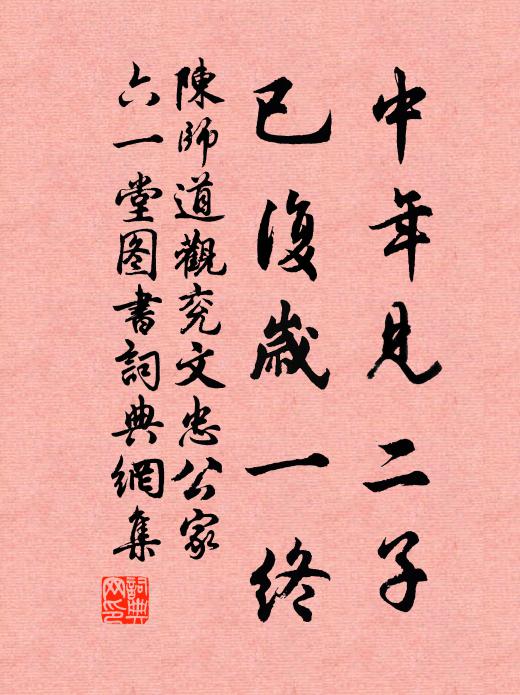 中年見二子
已復歲一終
陳師道觀兗文忠公家
六一堂图書詞典網集
詞典